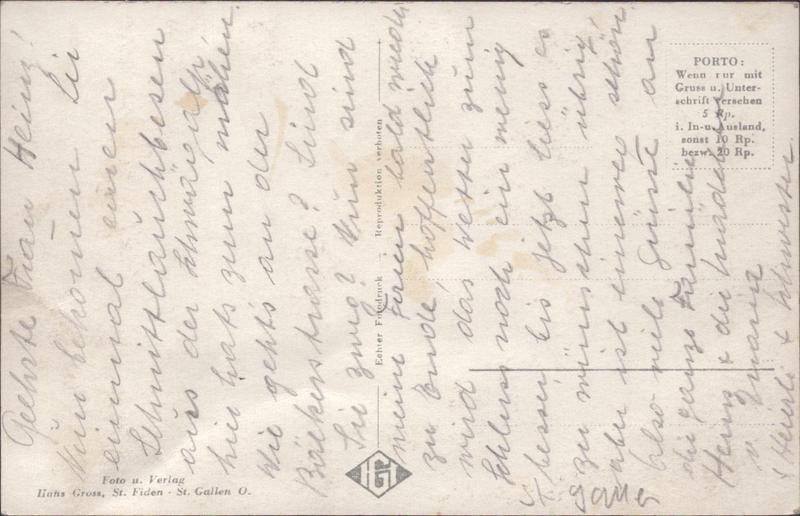 Geehrte Frau Heinz!
Nun bekomen Sie
einmal einen
Schnittlauchbesen
aus der Schwägalp
hier hats zum mähen.
Wie gehts an der
Bäckerstrasse? Sind
Sie zwäg? Nun sind
meine Ferien bald wieder
zu Ende, hoffentlich
wird das Wetter zum
Schluss noch ein wenig
besser, bis jetzt liess es
zu wünschen übrig
aber ist einewäg schön.
Also viele Grüsse an
die ganze Familie
Heinz & die
v. Maria
& Schwester
PORTO:
Wenn nur mit
Gruss u. Unter-
schrift versehen
5 Rp.
i. In- u. Ausland,
sonst 10 Rp.
bezw. 20 Rp.
Echter Fotodruck - Reproduktion verboten
HG
Foto u. Verlag
Hans Gross, St. Fiden - St. Gallen O.